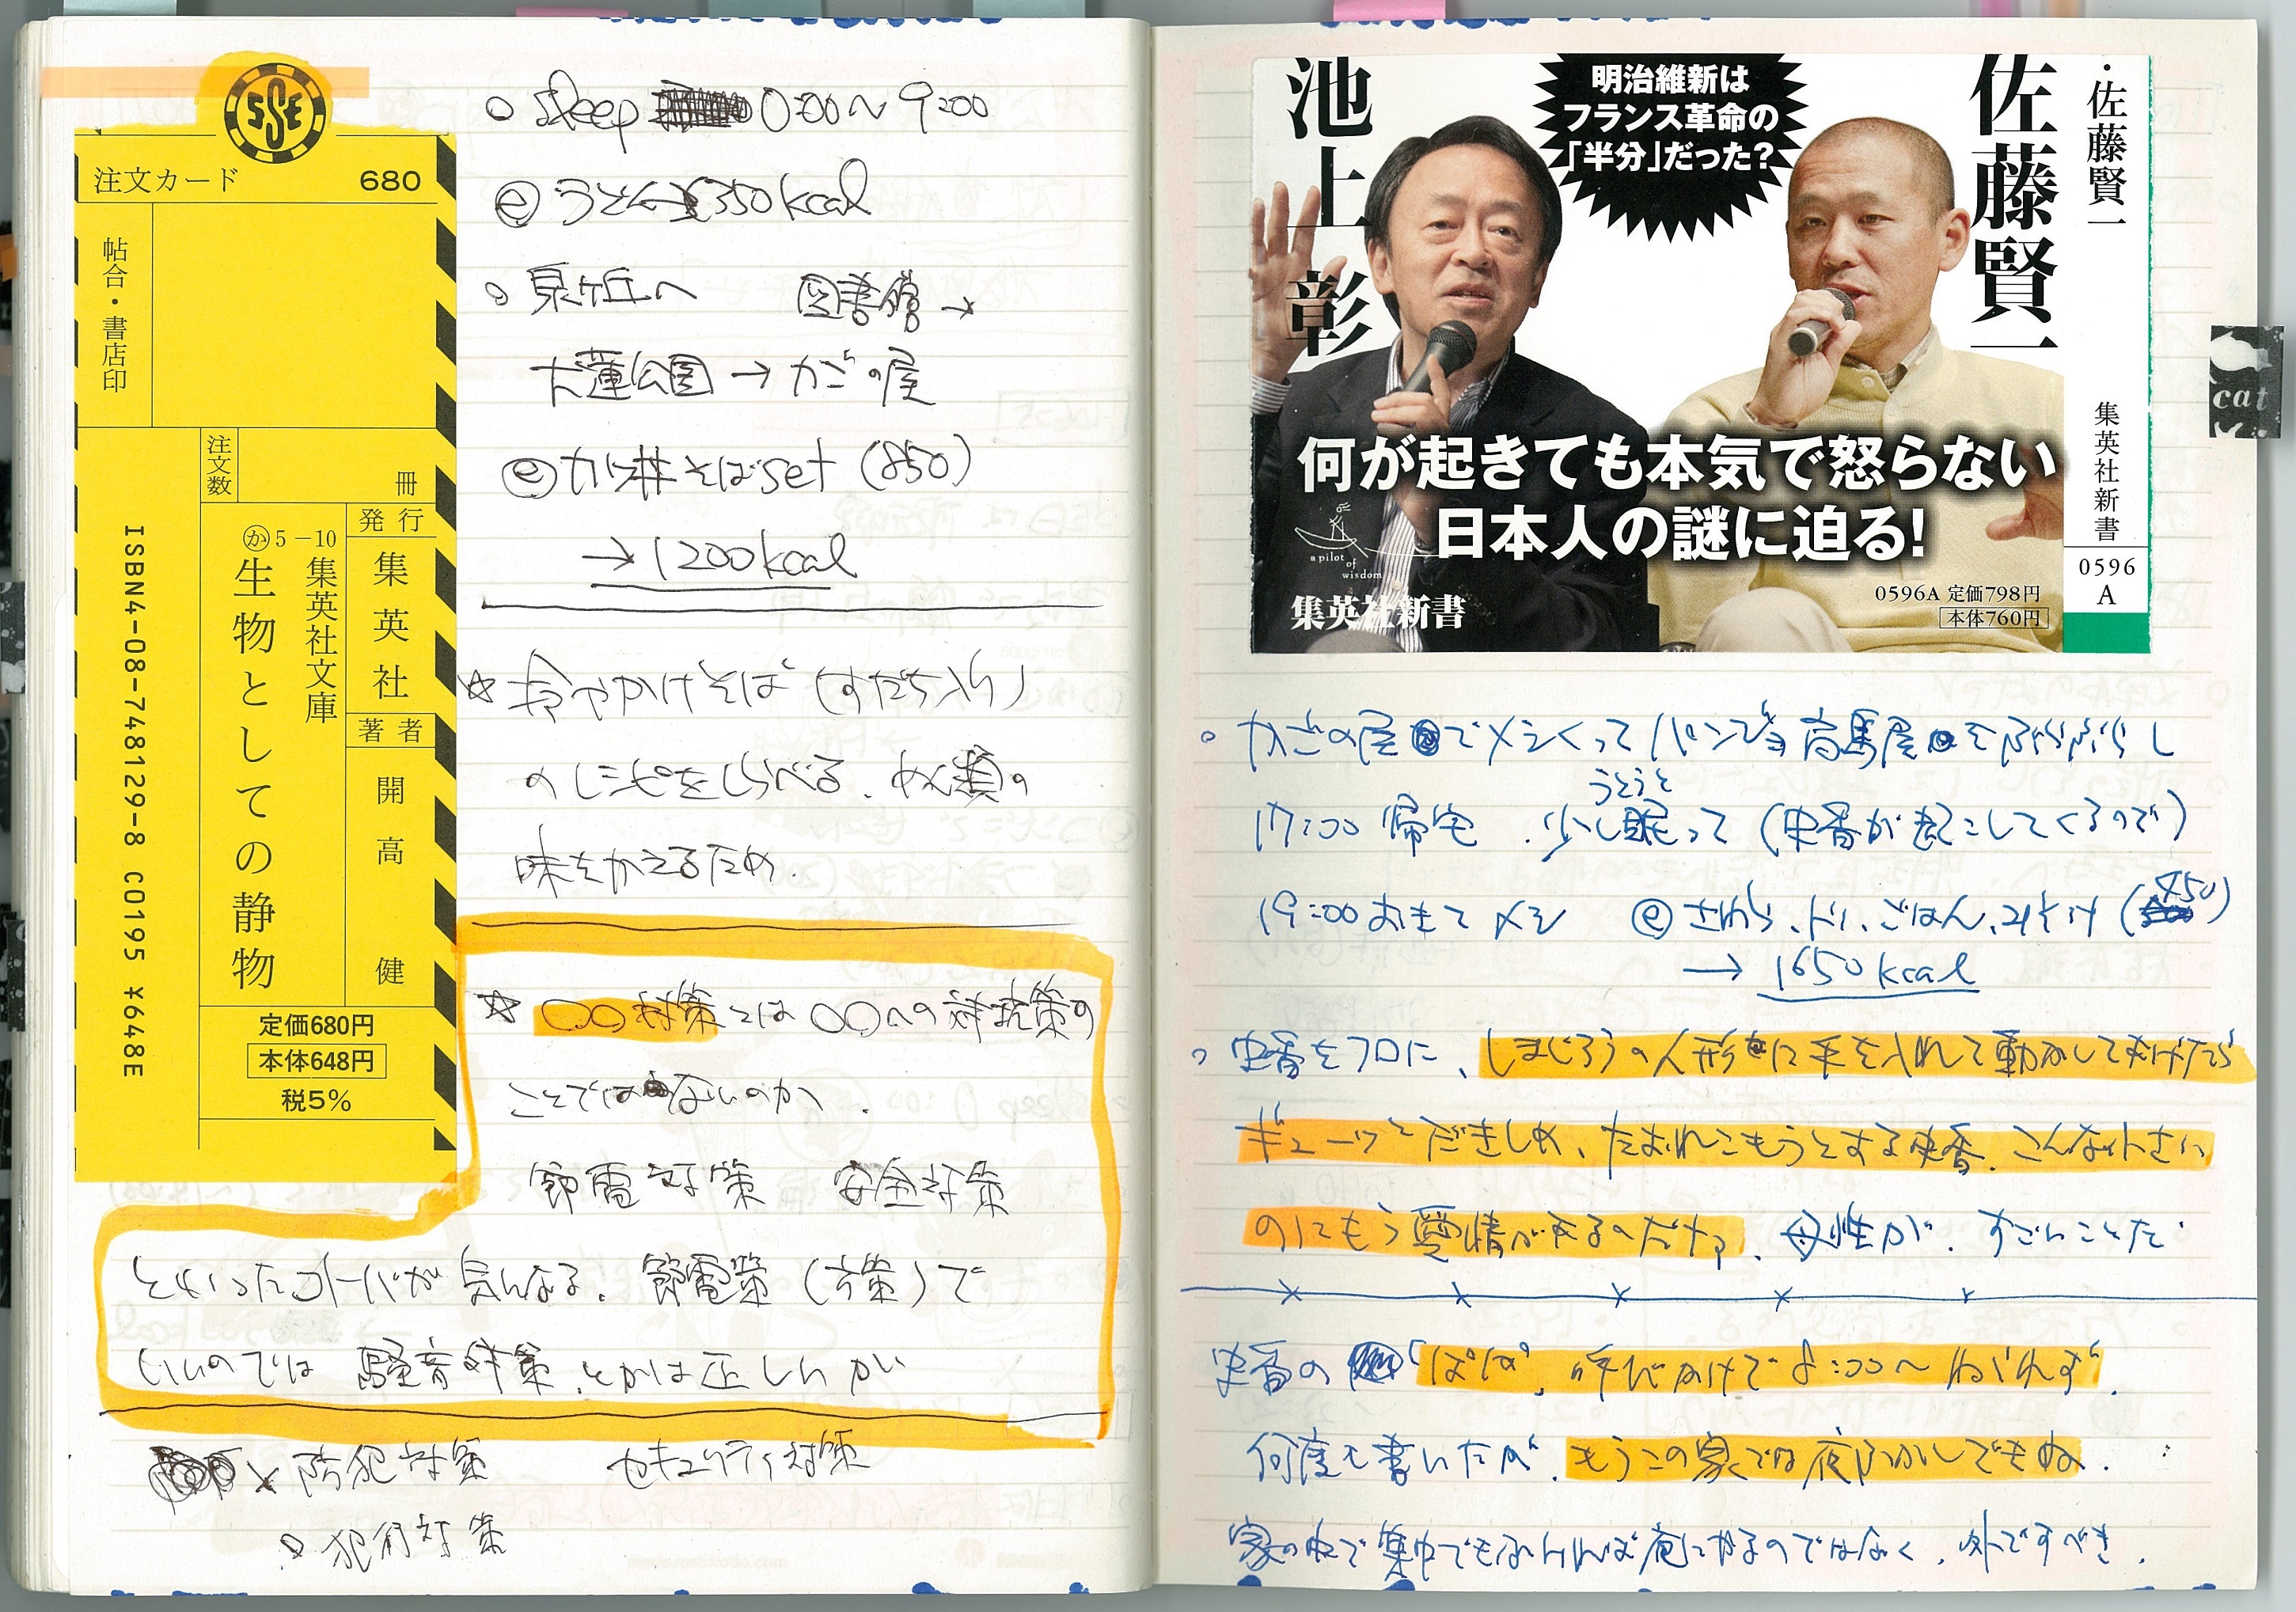 SSE
注文カード 680
帖合・書店印
注文数
冊
発行
集英社
著者
開高 健
か5-10
集英社文庫
生物としての静物
定価680円
本体648円
税5%
ISBN4-08-748129-8 C0195 ¥648E
○ sleep 0:00〜9:00
ⓔ うどん 350kcal
○ 泉ヶ丘へ 図書館→
大蓮公園→かごの屋
ⓔ カツ丼そばset (850)
→1200kcal
☆ 冷やかけそば(すだち入り)
のレシピをしらべる. めん類の
味をかえるため.
☆ ○○対策とは○○への対抗策の
ことではないのか.
節電対策 安全対策
といったコトバが気になる. 節電策(方策)で
いいのでは 騒音対策. とかは正しいか
× 防犯対策 セキュリティ対策
○ 犯罪対策
池上 彰
明治維新は
フランス革命の
「半分」だった?
佐藤賢一
・佐藤賢一
集英社新書
0596
A
何が起きても本気で怒らない
日本人の謎に迫る!
a pilot
of
wisdom
集英社新書
0596A 定価798円
本体760円
cat
○ かごの屋でメシくって パンジョ 高島屋をぶらぶらし
うとうと
17:00 帰宅. 少し眠って(史香が起こしてくるので)
19:00 おきてメシ ⓔ さわら、トリ、ごはん、みそ汁(450)
→ 1650kcal
○ 史香をフロに、しまじろうの人形に手を入れて動かしてあげたら
ギューッとだきしめ、たおれこもうとする史香. こんな小さい
のにもう愛情があるのだナァ. 母性が. すごいことだ
史香の「ぱぱ」呼びかけで8:00〜ねられず.
何度も書いたが. もうこの家では夜ふかしできぬ.
家の中で集中できなければ庵にやるのではなく. 外ですべき.